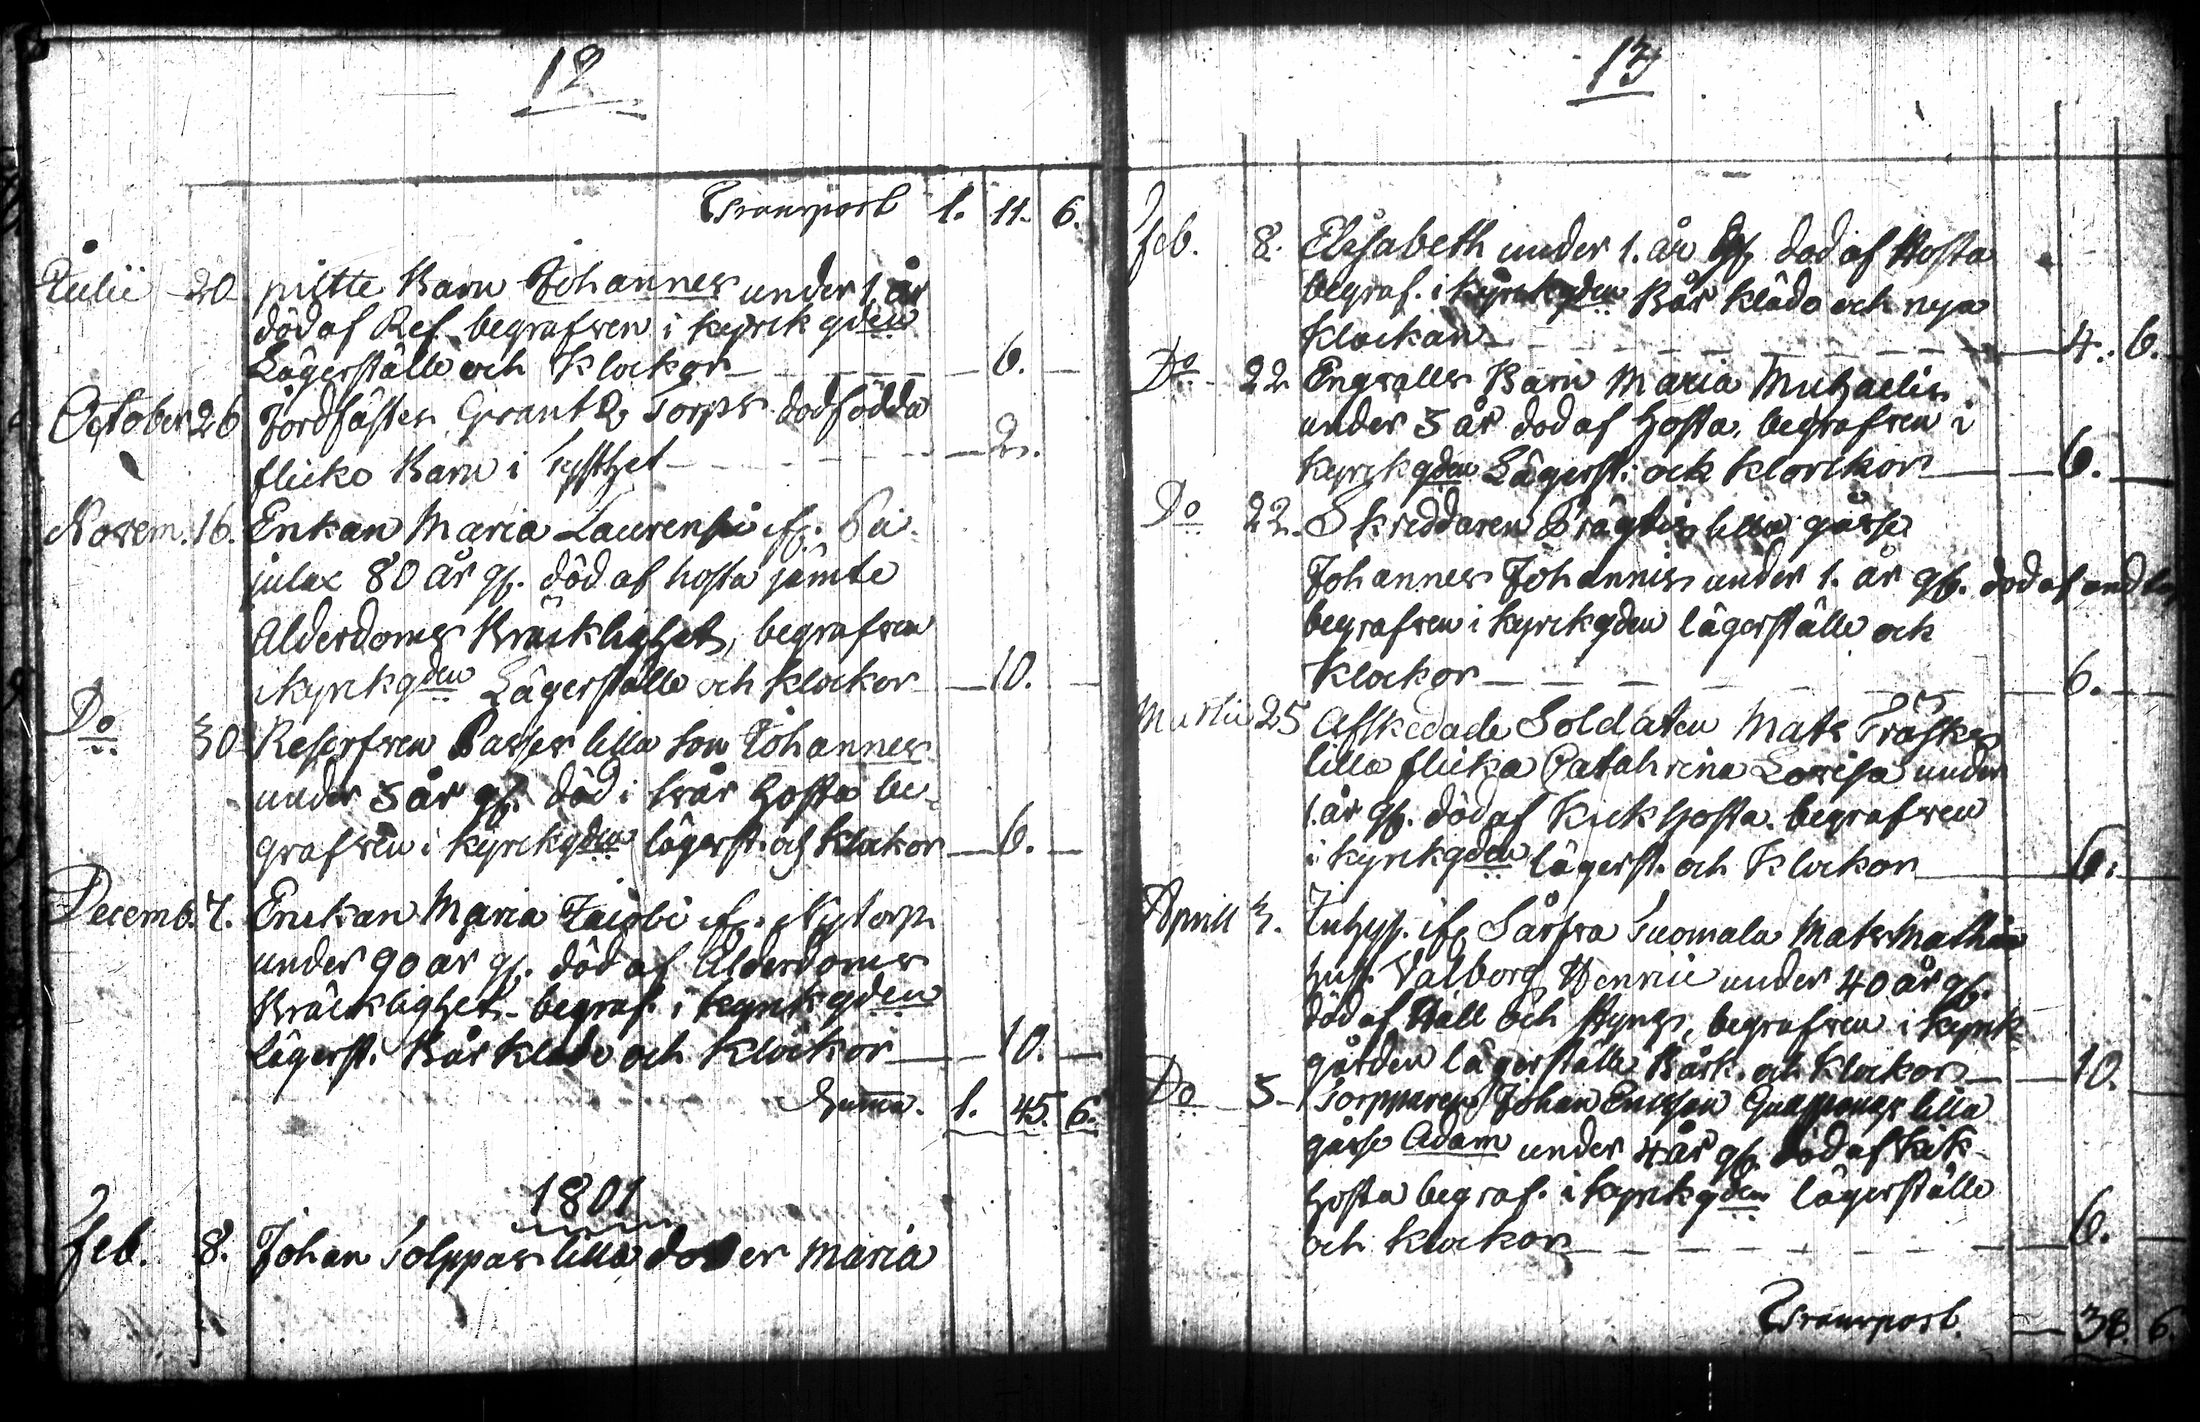 12
Transport 1. 11. 6.
Julii 20 piltte Barn Johannes under 1 år
död af Ref. begrafven i kyrckgden
Lägerställe och Klockor 6.
October 26 Jordfästes Grantz Torps dödfödda
flicko Barn i Tysthet 2.
Novem. 16. Enkan Maria Laurensi if.
julax 80 år gl. död af hosta jämte
Alderdoms Bräcklighet, begrafven
i kyrckgden Lägerställe och klockor 10.
Do 30 Reserfven Basses lilla son Johannes
under 5 år gl. död i svår hosta be-
grafven i kyrckgden lägerst. och klockor 6.
Decemb. 7. Enckan Maria Jacobi if. Nytorp
under 90 år gl. död af Alderdoms
Bräcklighet begraf. i kyrckgden
Lägerst. Bårkläde och klockor 10.
Summa. 1. 45. 6.
1801
Feb. 8. Johan Tolppas lilla doter Maria
13
Feb. 8. Elisabeth under 1. år gl. död af Hosta
begraf. i kyrckgden Bår kläde och nya
Klockan 4. 6.
Do 22 Engvalls Barn Maria Michaelis
under 5 år död af hosta, begrafven i
kyrckgden Lägerst. och klockor 6.
Do 22. Skreddaren lilla gåsse
Johannes Johannis under 1. år gl. död af
begrafven i kyrckgden lägerställe och
Klockor 6.
Martii 25 Afskedade Soldaten Mats Träsks
lilla flicka Catahrina Lovisa under
1. år gl. död af Kickhosta. begrafven
i kyrckgden lägerst. och Klockor 6.
Aprill 3. Inhys. if. Särfva Tuomala Mats
hust. Valborg Henrici under 40 år gl.
död af Håll och Styng, begrafven i kyrck-
gården lägerställe Bårk. och klockor 10.
Do 5 Torpparens Johan Ericsson lilla
gåsse Adam under 4 år gl. död af Kik-
hosta begraf. i kyrckgden lägerställe
och klockor 6.
Transport. 38. 6.